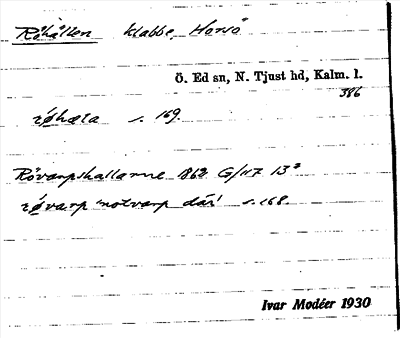 Röhällen klabbe, Horsö
Ö. Ed sn, N. Tjust hd, Kalm. l.
386
s. 169.
Rövarpshallarne 862 G/117 13²
notvarp där! s. 168.
Ivar Modéer 1930